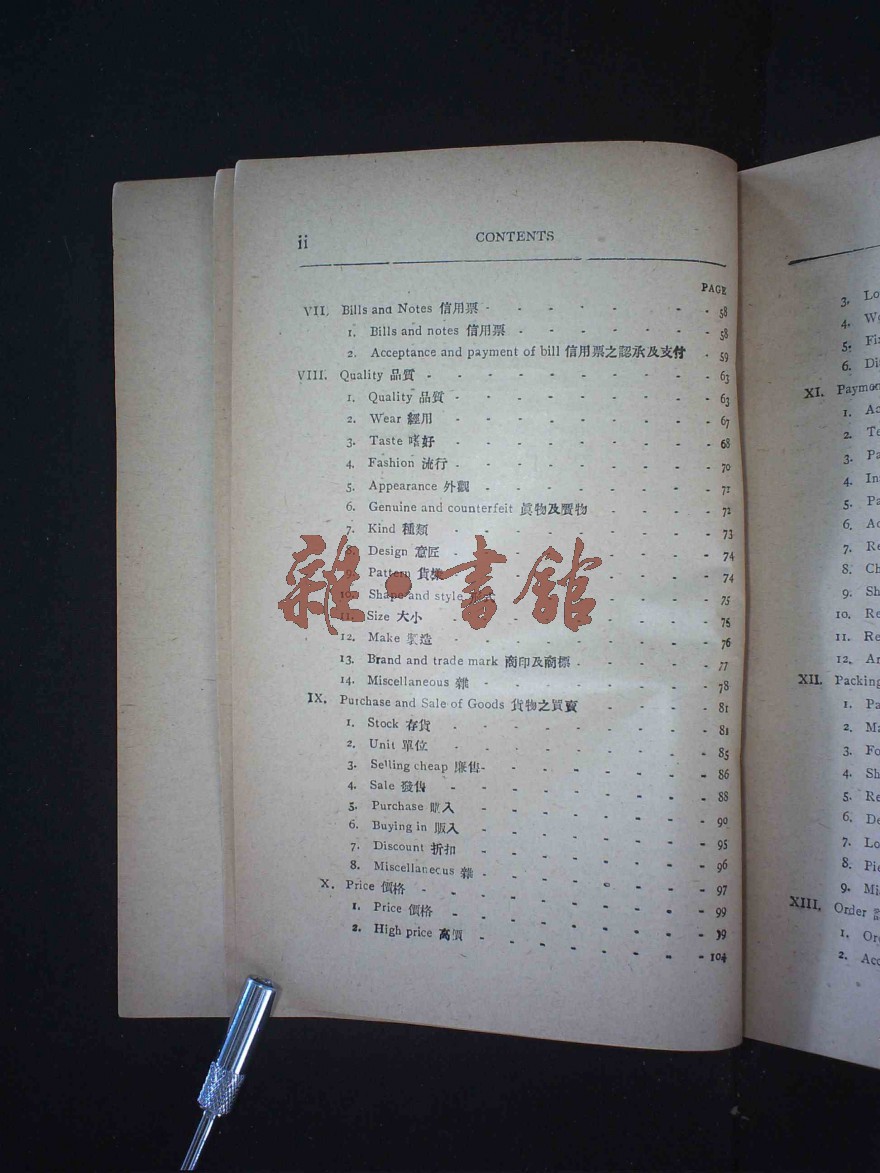 ii CONTENTS
PAGE
VII. Bills and Notes 信用票 - - - - - - - 58
1. Bills and notes 信用票 - - - - - - 58
2. Acceptance and payment of bill 信用票之認承及支付 - 59
VIII. Quality 品質 - - - - - - - - - 63
1. Quality 品質 - - - - - - - - 63
2. Wear 經用 - - - - - - - - 67
3. Taste 嗜好 - - - - - - - - 68
4. Fashion 流行 - - - - - - - - 70
5. Appearance 外觀 - - - - - - - 71
6. Genuine and counterfeit 眞物及贋物 - - - - 72
7. Kind 種類 - - - - - - - - 73
8. Design 意匠 - - - - - - - - 74
9. Pattern 貨樣 - - - - - - - - 74
10. Shape and style - - - - - - - 75
11. Size 大小 - - - - - - - - 75
12. Make 製造 - - - - - - - - 76
13. Brand and trade mark 商印及商標 - - - - - 77
14. Miscellaneous 雜 - - - - - - - 78
IX. Purchase and Sale of Goods 貨物之買賣 - - - - 81
1. Stock 存貨 - - - - - - - - 81
2. Unit 單位 - - - - - - - - 85
3. Selling cheap 廉售 - - - - - - - 86
4. Sale 發售 - - - - - - - - 88
5. Purchase 購入 - - - - - - - 90
6. Buying in 販入 - - - - - - - 95
7. Discount 折扣 - - - - - - - 96
8. Miscellaneous 雜 - - - - - - - 97
X. Price 價格 - - - - - - - - 99
1. Price 價格 - - - - - - - - 99
2. High price 高價 - - - - - - - 104
雜·書館
3. Lo
4. We
5. Fi
6. Di
XI. Payme
1. Ac
2. Te
3. Pa
4. In
5. Pa
6. Ac
7. Re
8. Ch
9. Sh
10. Re
11. Re
12. Ar
XII. Packing
1. Pa
2. Ma
3. Fo
4. Sh
5. Re
6. De
7. Lo
8. Pie
9. Mi
XIII. Order
1. Or
2. Acc